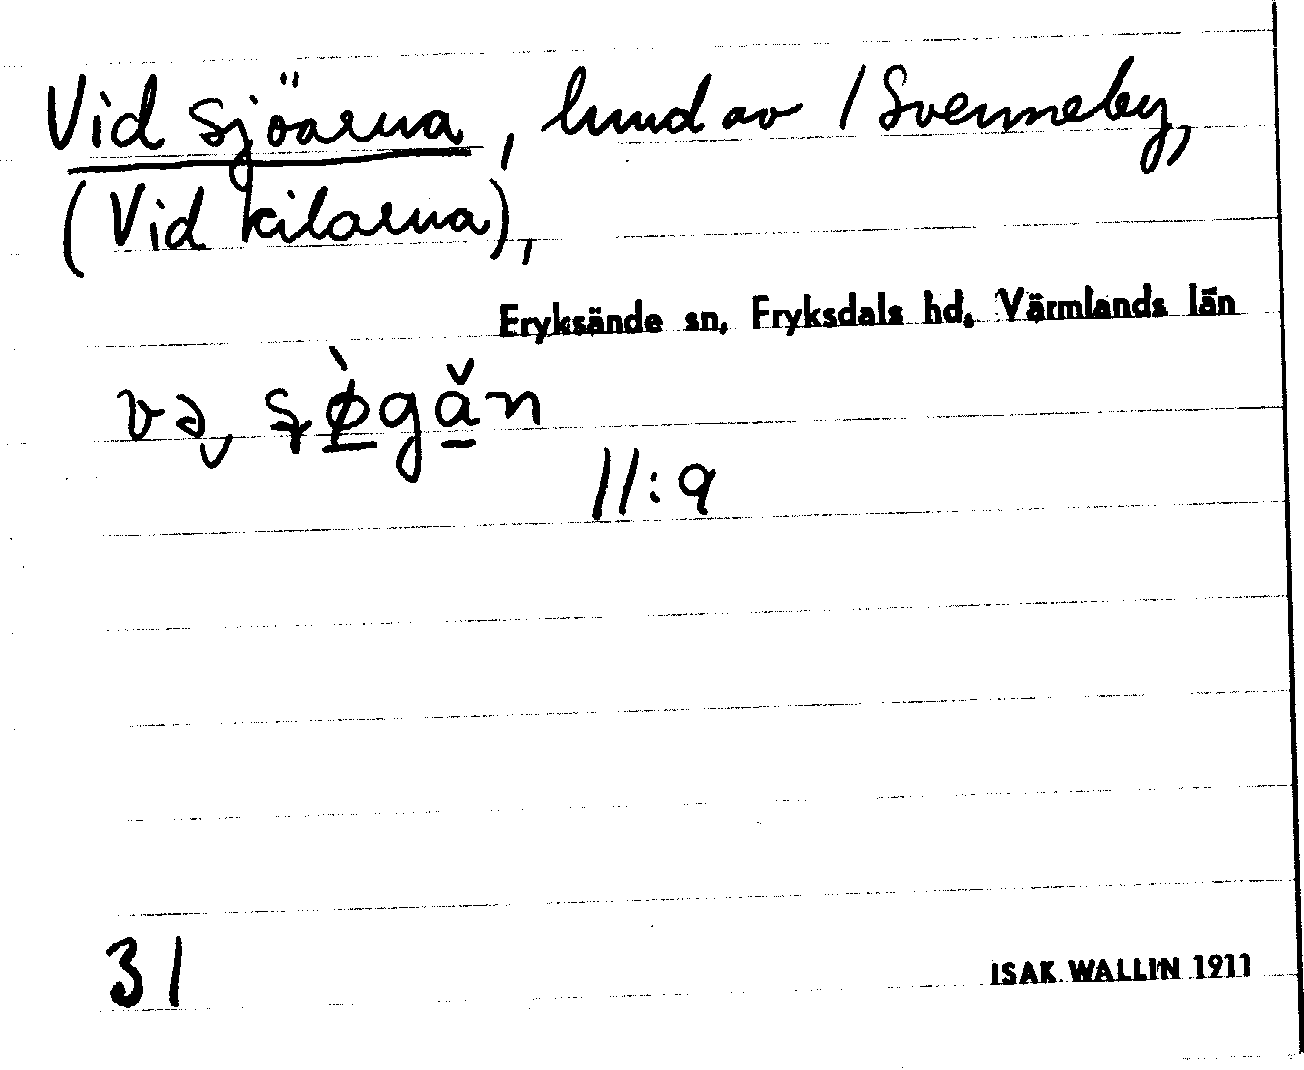 Vid sjöarna, lund av / Svenneby,
(Vid kilarna),
Fryksände sn, Fryksdals hd, Värmlands län
11:9
31
ISAK WALLIN 1911